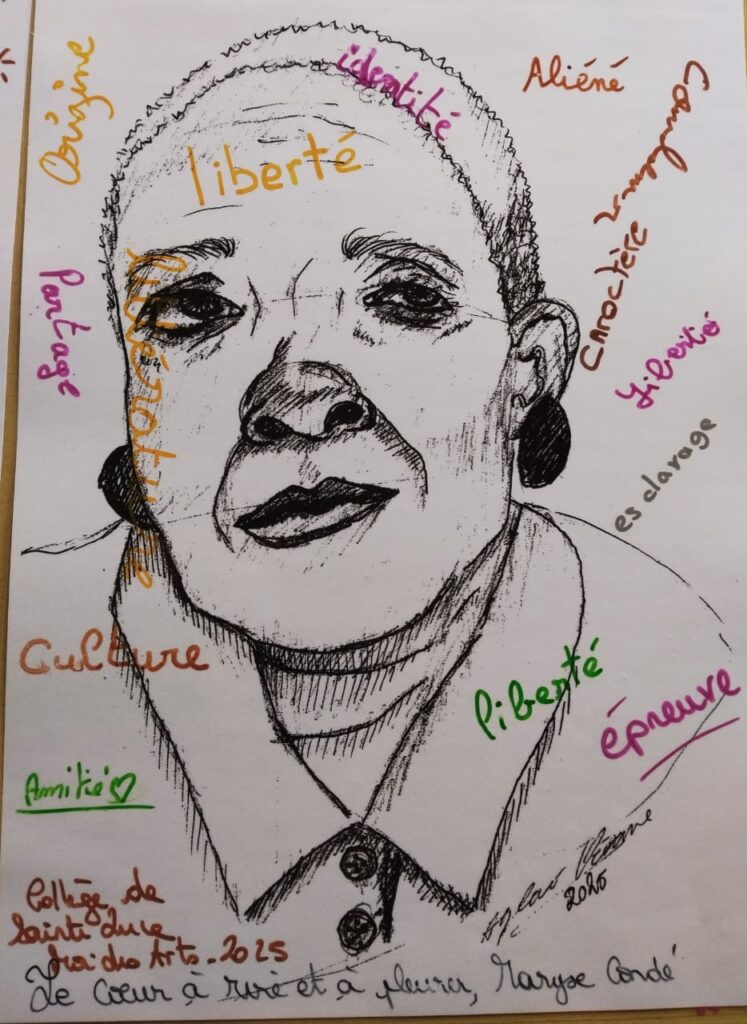 Origine
identité
Aliéné
liberté
Caractère
Partage
littérature
liberté
esclavage
Culture
liberté
épreuve
Amitié
2025
Collège de
Sainte Luce
Mai des Arts - 2025
Le Coeur à rire et à pleurer, Maryse Condé